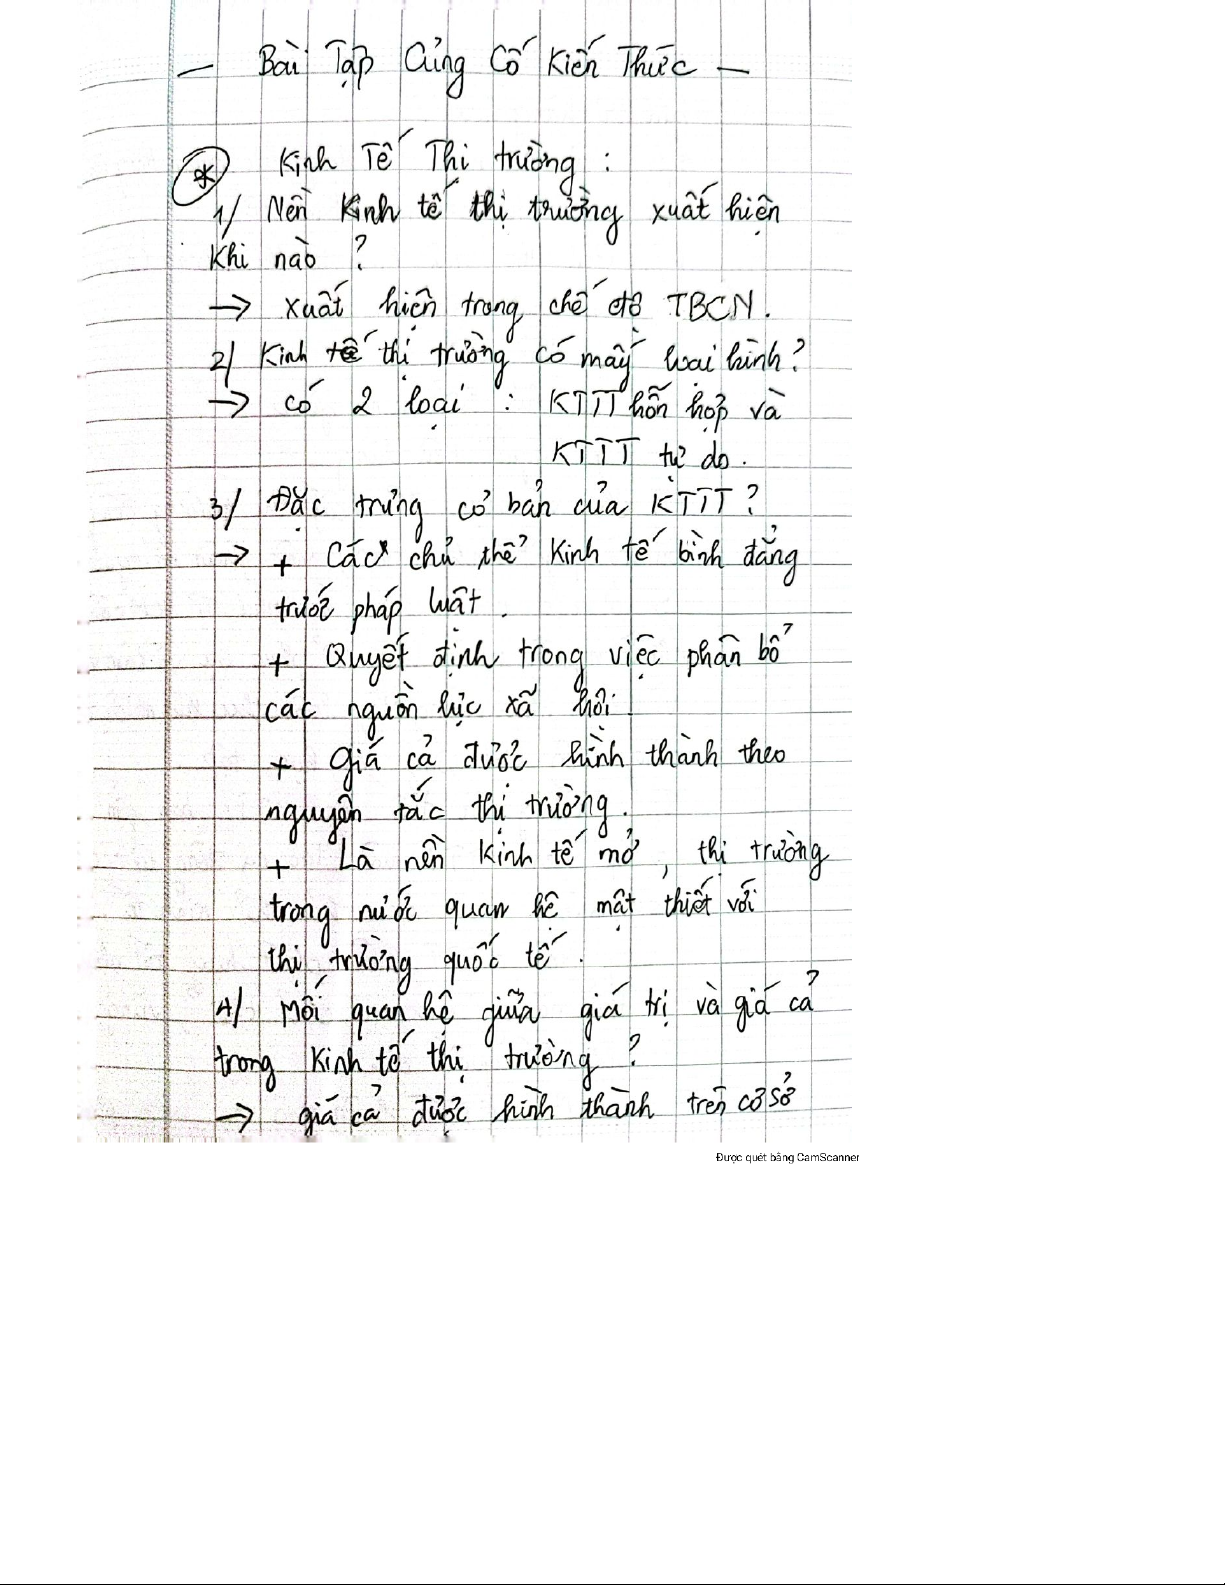 — Bài Tập Củng Cố Kiến Thức —
* Kinh Tế Thị trường :
1/ Nền Kinh tế thị trường xuất hiện
Khi nào ?
→ xuất hiện trong chế độ TBCN.
2/ Kinh tế thị trường có mấy loại hình?
→ có 2 loại : KTTT hỗn hợp và
KTTT tự do.
3/ Đặc trưng cơ bản của KTTT ?
→ + Các chủ thể Kinh tế bình đẳng
trước pháp luật.
+ Quyết định trong việc phân bổ
các nguồn lực xã hội.
+ giá cả được hình thành theo
nguyên tắc thị trường.
+ Là nền Kinh tế mở, thị trường
trong nước quan hệ mật thiết với
thị trường quốc tế.
4/ Mối quan hệ giữa giá trị và giá cả
trong Kinh tế thị trường ?
→ giá cả được hình thành trên cơ sở
Được quét bằng CamScanner